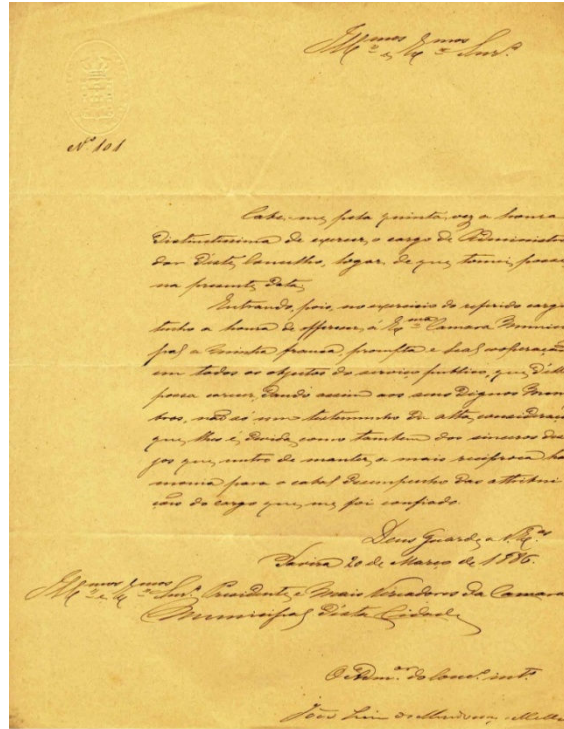 Ill.mos e Ex.mos Snrs.
Nº 101
Cabe-me, pela quinta vez a honra
distinctissima de exercer, o cargo de Administra
dor d'este, Concelho, logar, de que, tomei, posse
na presente, data,
Entrando, pois, no exercicio do referido cargo
tenho a honra de offerecer, á Ex.ma Camara Munici
pal a minha franca, prompta e leal cooperação
em todos os objetos do serviço publico, que, d'ella
possa carecer, dando assim aos seus Dignos Mem
bros, não só um testemunho da alta, consideração
que, lhes é, devida, como tambem dos sinceros dese
jos que, nutro de manter, a mais reciproca har
monia para o cabal desempenho das attribui
ções do cargo que, me, foi confiado.
Deus Guarde, a V. Ex.as
Tavira 20 de Março de 1886.
Ill.mos e Ex.mos Snrs. Presidente, e mais Vereadores da Camara
Municipal d'esta Cidade,
O Adm.or do Conc.º int.º
João